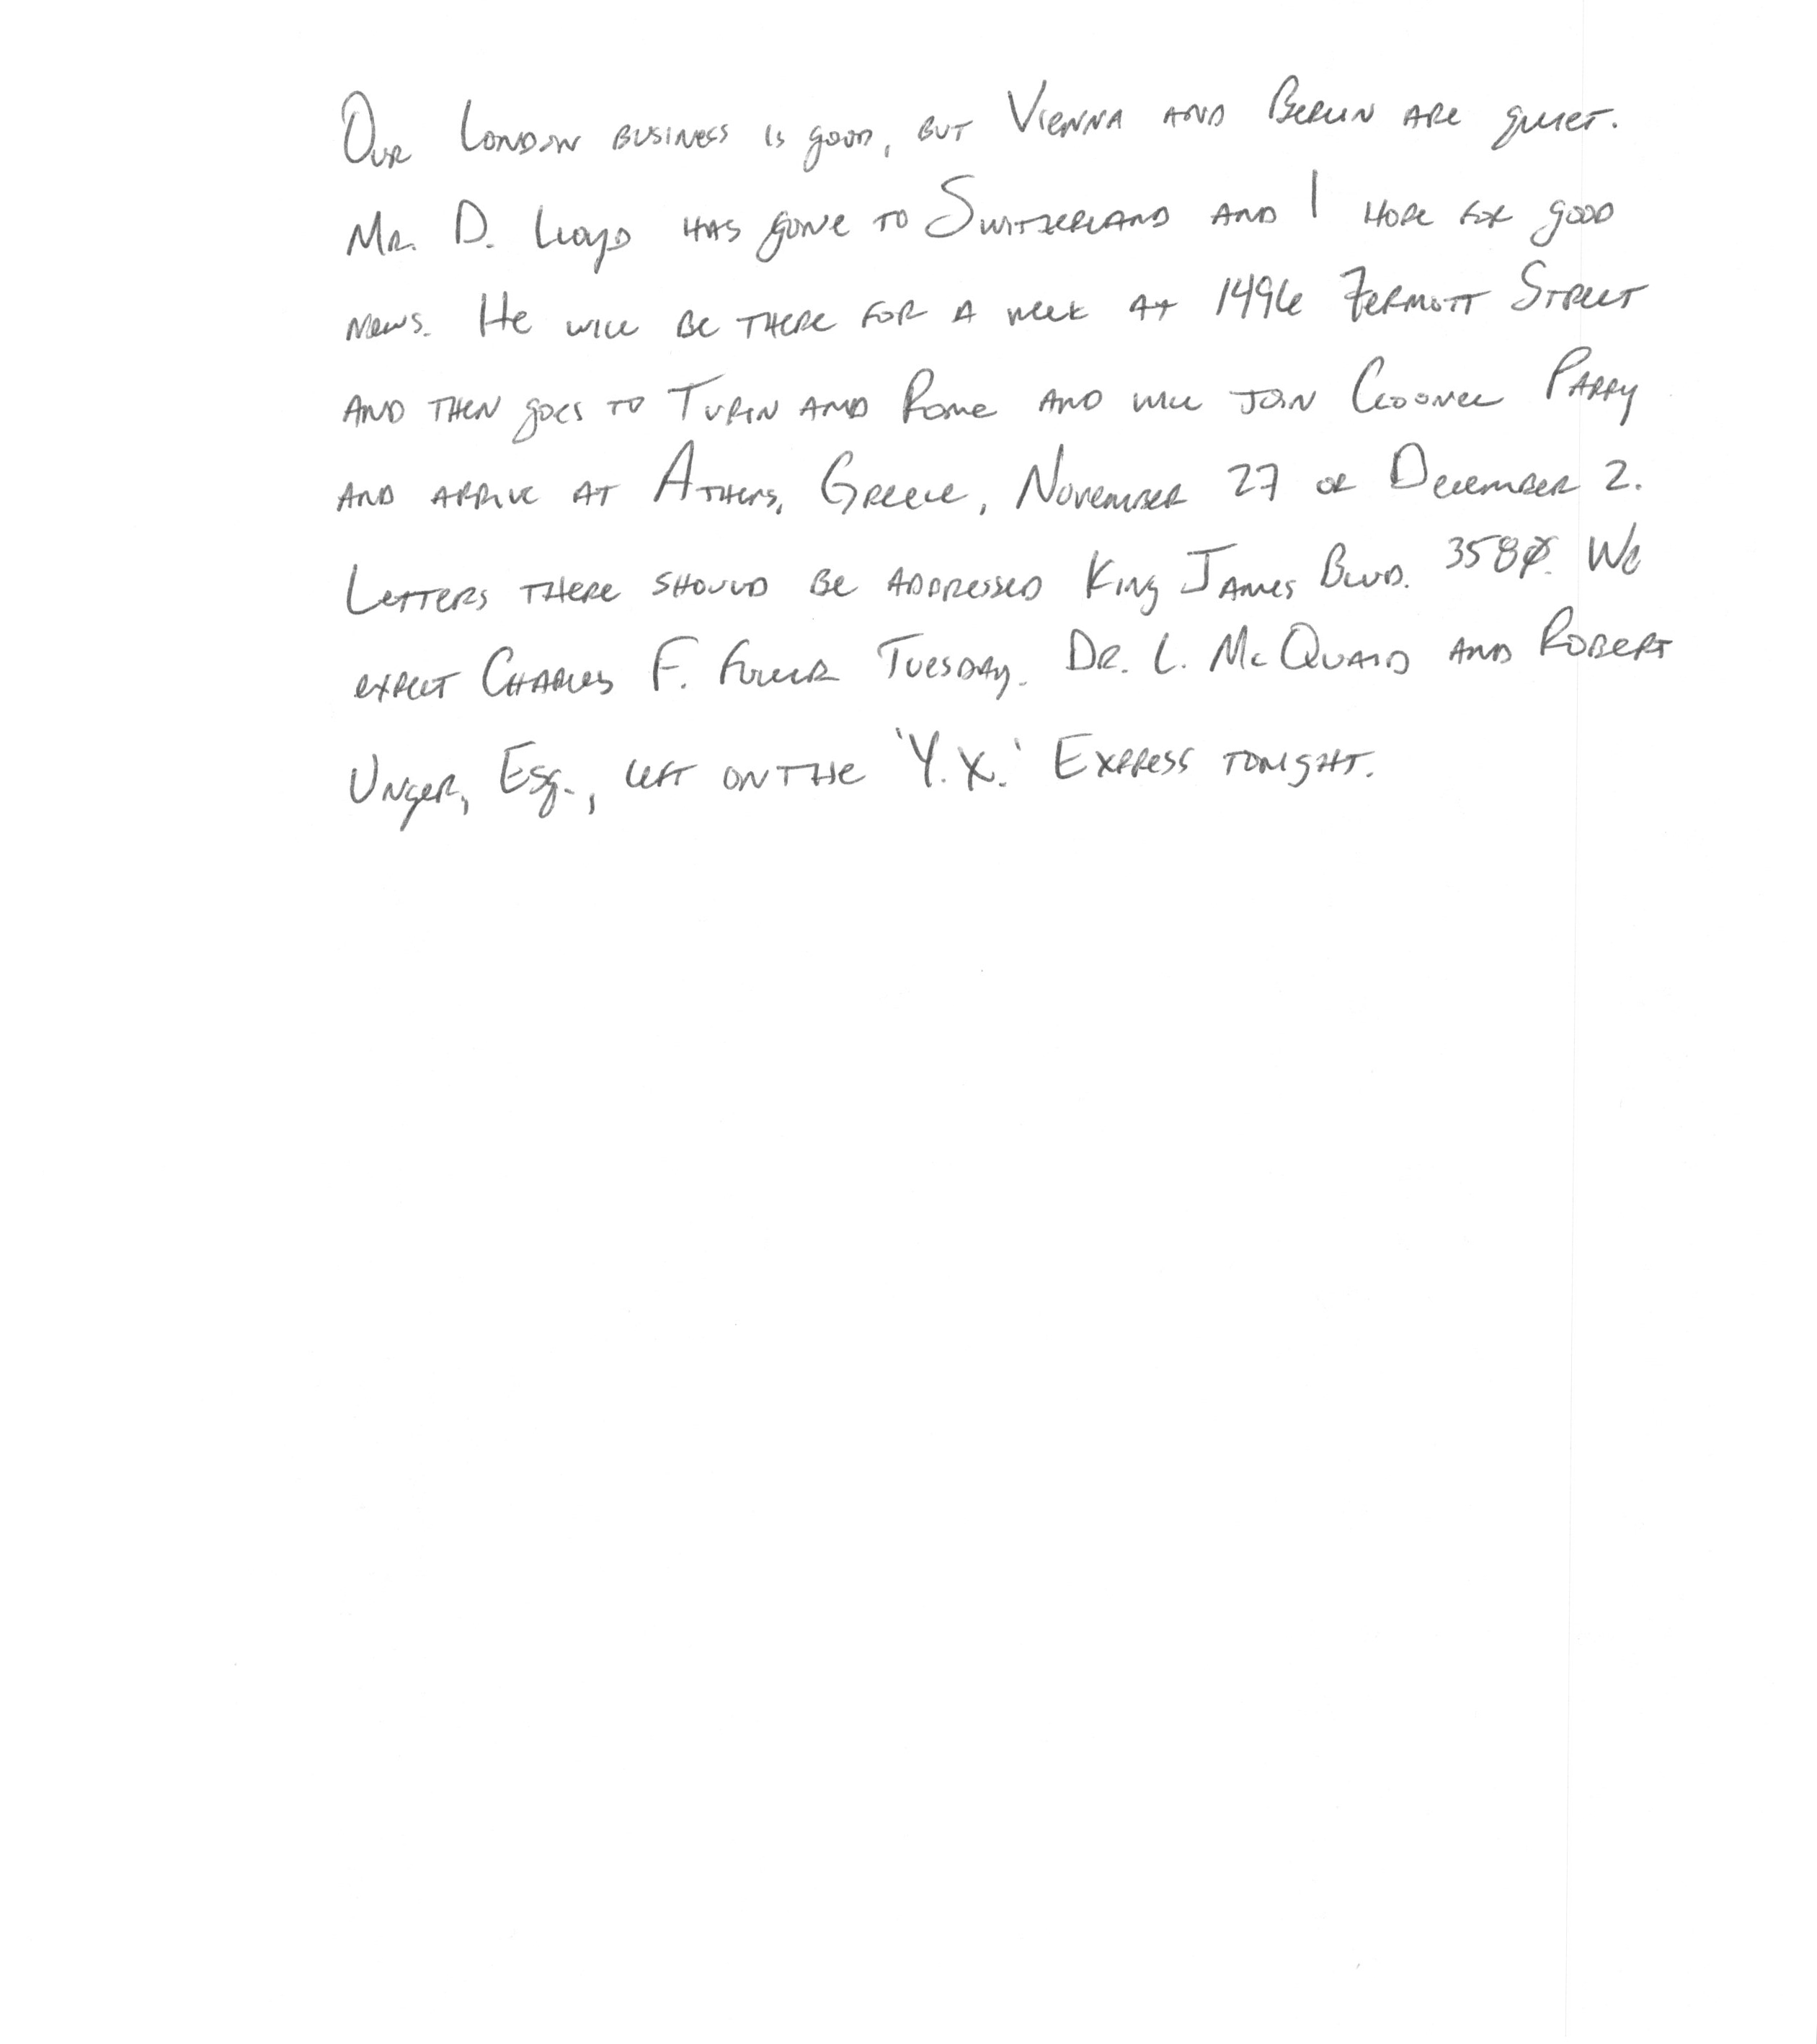 Our London business is good, but Vienna and Berlin are quiet.
Mr. D. Lloyd has gone to Switzerland and I hope for good
news. He will be there for a week at 1496 Zermott Street
and then goes to Turin and Rome and will join Cloonel Parry
and arrive at Athens, Greece, November 27 or December 2.
Letters there should be addressed King James Blvd. 3580. We
expect Charles F. Fuller Tuesday. Dr. L. McQuaid and Robert
Unger, Esq., left on the 'Y.X.' Express tonight.